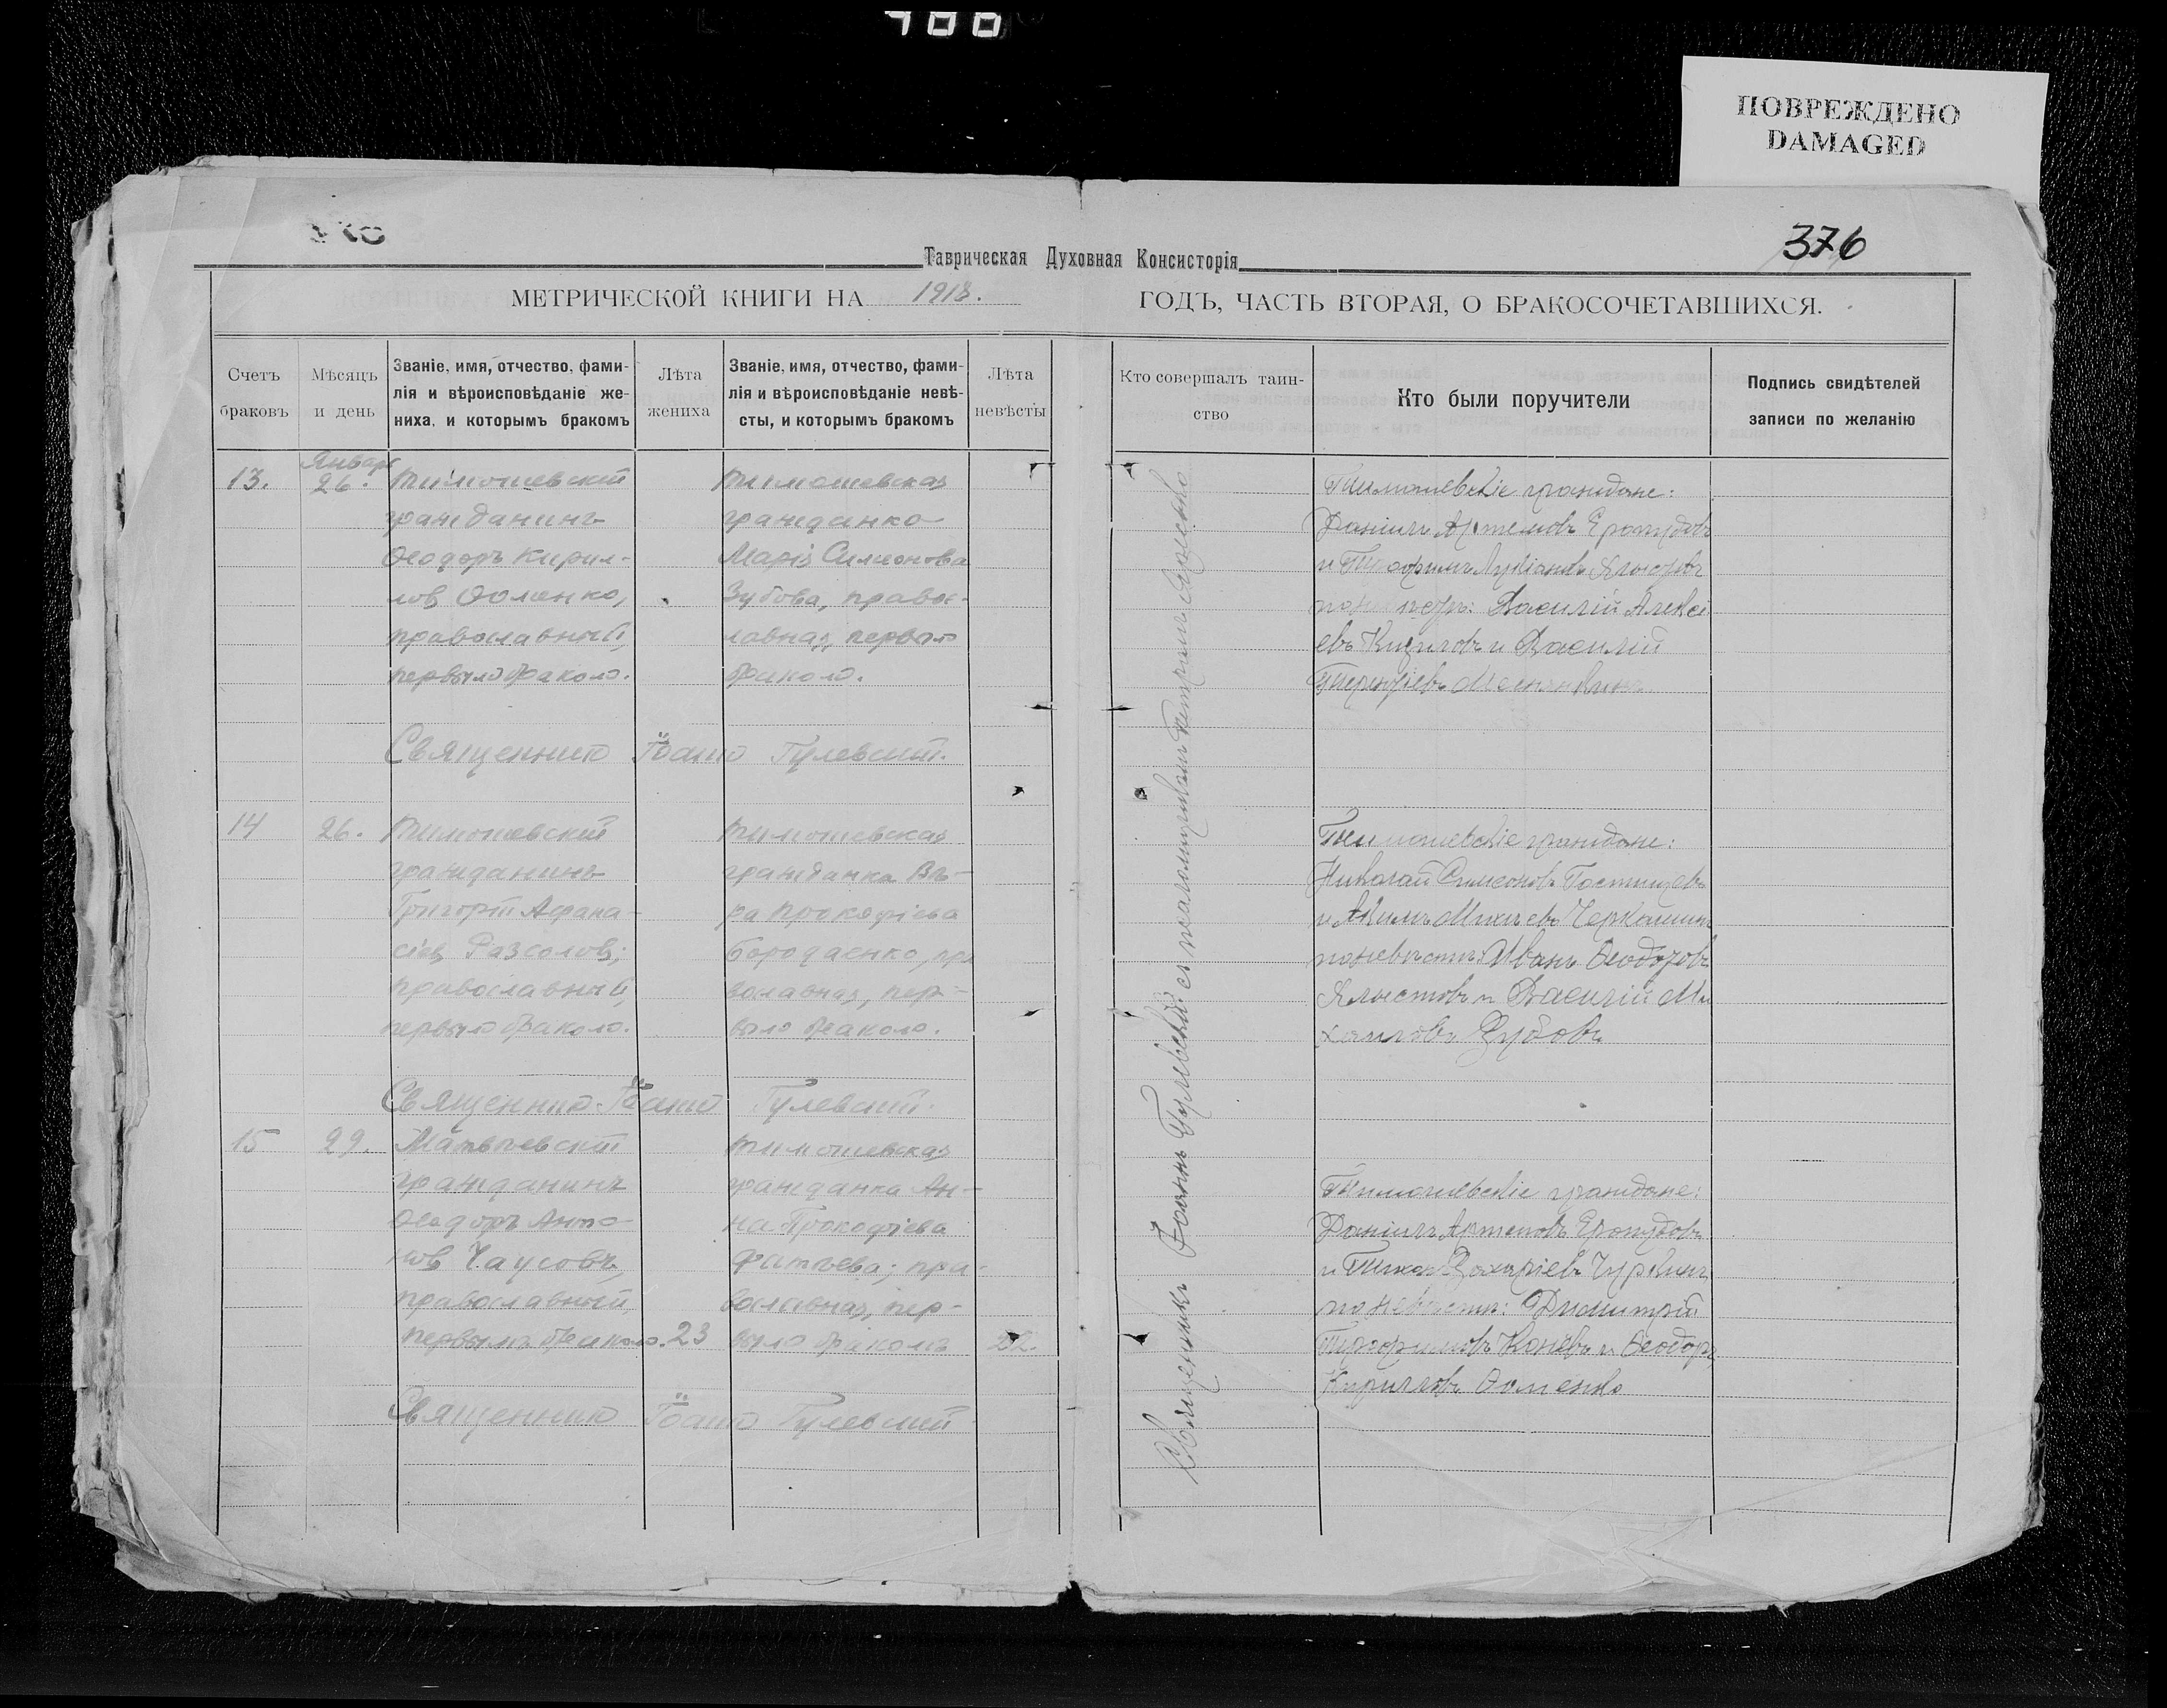 ПОВРЕЖДЕНО
DAMAGED
376
Таврическая Духовная Консисторія
МЕТРИЧЕСКОЙ КНИГИ НА 1918.
ГОДЪ, ЧАСТЬ ВТОРАЯ, О БРАКОСОЧЕТАВШИХСЯ.
Счетъ
браковъ
Мѣсяцъ
и день
Званіе, имя, отчество, фами-
лія и вѣроисповѣданіе же-
ниха, и которымъ бракомъ
Лѣта
жениха
Званіе, имя, отчество, фами-
лія и вѣроисповѣданіе невѣ-
сты, и которымъ бракомъ
Лѣта
невѣсты
Кто совершалъ таин-
ство
Кто были поручители
Подпись свидѣтелей
записи по желанію
13.
26.
Тимошевскій
гражданинъ
Ѳеодоръ Кирил-
ловъ Ѳоменко,
православный,
первымъ бракомъ.
Тимошевская
гражданка
Марія Симеонова
Зубова, правос-
лавная, первымъ
бракомъ.
Тимошевскіе граждане:
Даніилъ Артемовъ
и
Василій Алексі
евъ и Василій
Терентіевъ
Священникъ Іоаннъ Гулевскій.
14
26.
Тимошевскій
гражданинъ
Григорій Аѳана-
сіевъ Разсоловъ,
православный,
первымъ бракомъ.
Тимошевская
гражданка Вѣ-
ра Прокофіева
Бородаенко, пра
вославная, пер-
вымъ бракомъ.
Тимошевскіе граждане:
Николай Симеоновъ
и Акимъ
по невѣстѣ: Иванъ Ѳеодоровъ
и Василій Ми
хаиловъ Зубовъ
Священникъ Іоаннъ Гулевскій.
15
29.
Матвѣевскій
гражданинъ
Ѳеодоръ Анто-
новъ Чаусовъ,
православный
первымъ бракомъ.
23
Тимошевская
гражданка Ан-
на Прокофіева
Фатѣева; пра-
вославная, пер-
вымъ бракомъ
22.
Тимошевскіе граждане:
Даніилъ Артемовъ
и Захаріевъ
по невѣстѣ: Димитрій
Трофимовъ Коневъ и Ѳеодоръ
Кирилловъ Ѳоменко
Священникъ Іоаннъ Гулевскій
Священникъ Іоаннъ Гулевскій съ псаломщикомъ